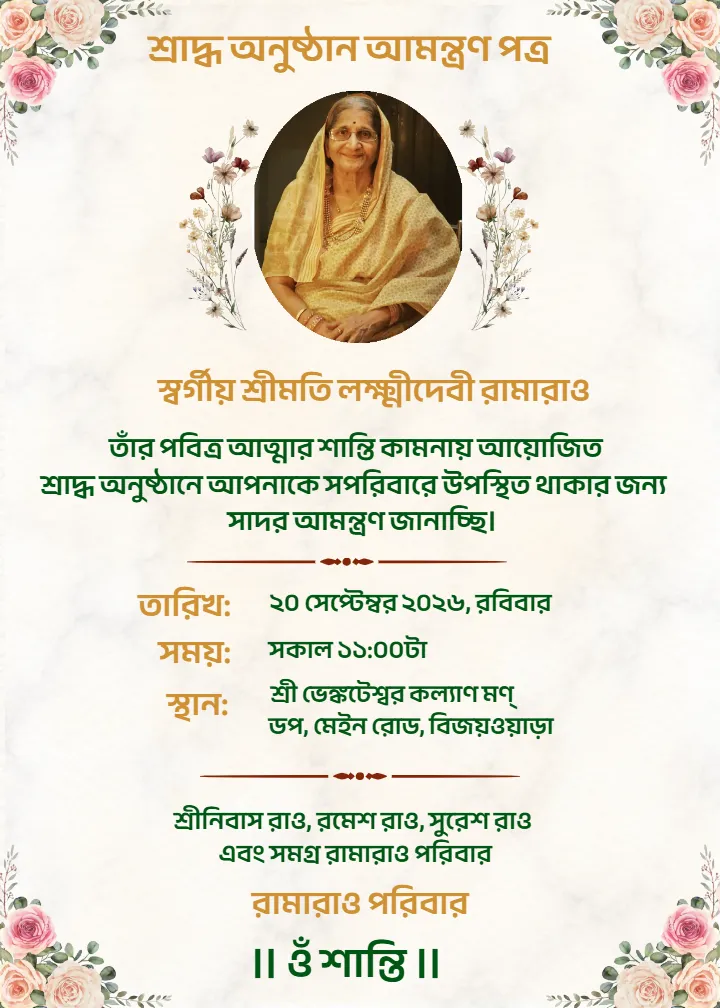 শ্রাদ্ধ অনুষ্ঠান আমন্ত্রণ পত্র
স্বর্গীয় শ্রীমতি লক্ষ্মীদেবী রামারাও
তাঁর পবিত্র আত্মার শান্তি কামনায় আয়োজিত
শ্রাদ্ধ অনুষ্ঠানে আপনাকে সপরিবারে উপস্থিত থাকার জন্য
সাদর আমন্ত্রণ জানাচ্ছি।
তারিখ: ২০ সেপ্টেম্বর ২০২৬, রবিবার
সময়: সকাল ১১:০০টা
স্থান: শ্রী ভেঙ্কটেশ্বর কল্যাণ মণ্
ডপ, মেইন রোড, বিজয়ওয়াড়া
শ্রীনিবাস রাও, রমেশ রাও, সুরেশ রাও
এবং সমগ্র রামারাও পরিবার
রামারাও পরিবার
॥ ওঁ শান্তি ॥